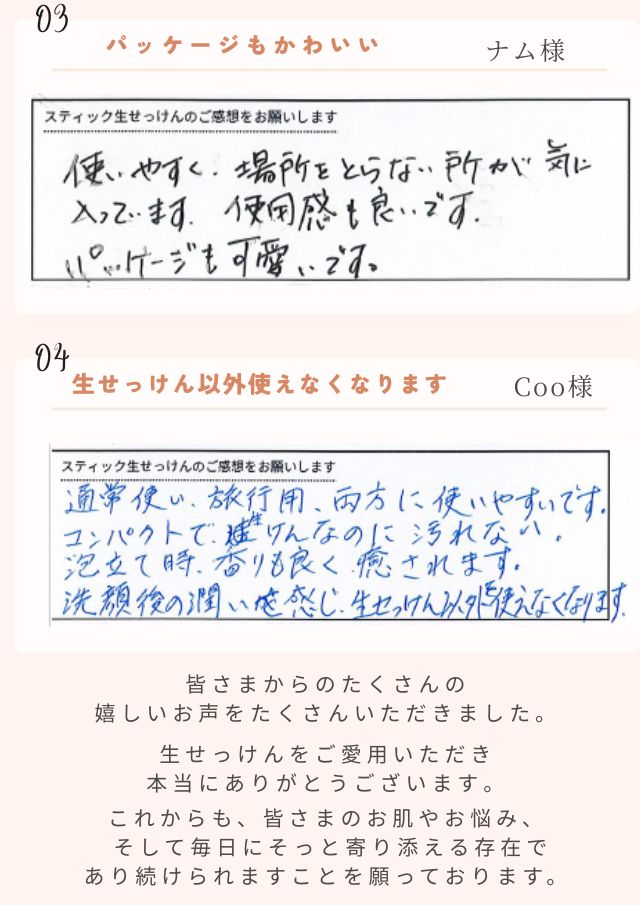 03
パッケージもかわいい
ナム様
スティック生せっけんのご感想をお願いします
使いやすく、場所をとらない所が気に
入っています。使用感も良いです。
パッケージも可愛いです。
04
生せっけん以外使えなくなります
Coo様
スティック生せっけんのご感想をお願いします
通常使い、旅行用、両方に使いやすいです。
コンパクトで、生けんなのに汚れない。
泡立て時、香りも良く癒されます。
洗顔後の潤い感じ、生せっけん以外を使えなくなります。
皆さまからのたくさんの
嬉しいお声をたくさんいただきました。
生せっけんをご愛用いただき
本当にありがとうございます。
これからも、皆さまのお肌やお悩み、
そして毎日にそっと寄り添える存在で
あり続けられますことを願っております。